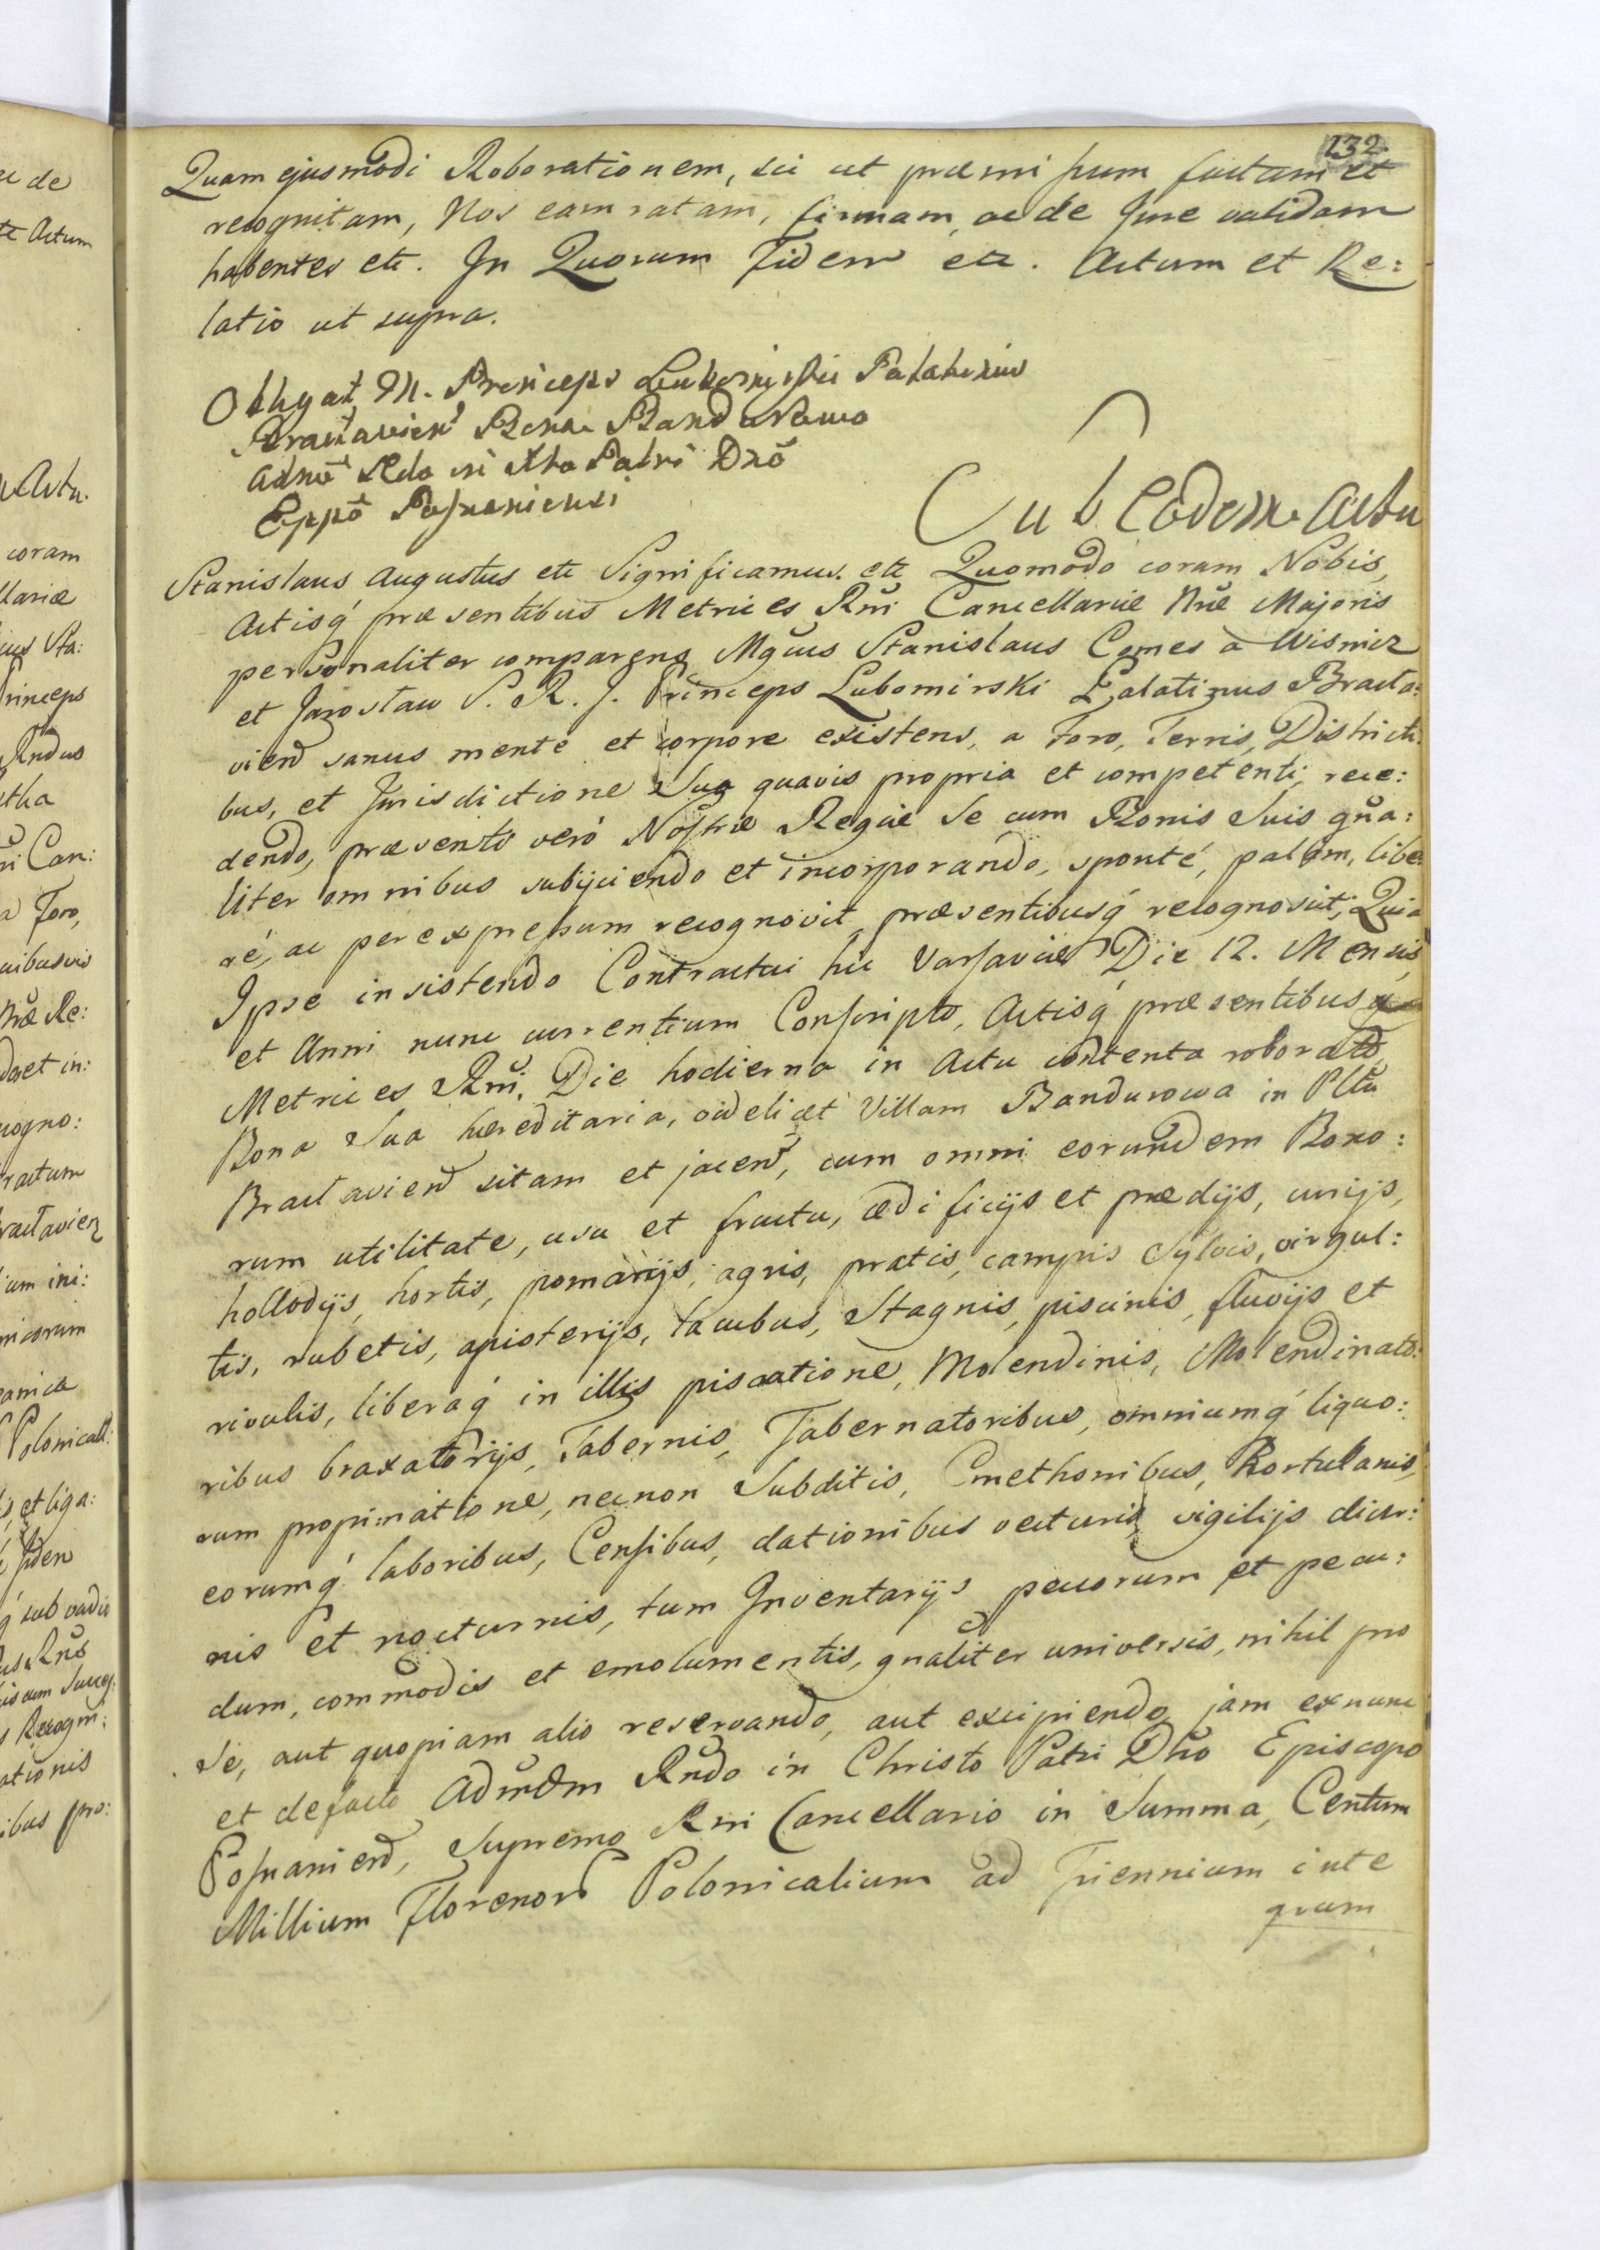 132
Quam ejusmodi Roborationem, sic ut præmissum factam et
recognitam, Nos eam ratam, firmam, ac de Jure validam
habentes etc. In Quorum Fidem etc. Actum et Re:
latio ut supra.
Obligat M. Princeps Lubomirski Palatinus
Braclavien Bona Bandurowa
Adno Rdo in Xto Patri Dno
Eppo Posnaniensi
Sub Eodem Actu
Stanislaus Augustus etc Significamus. etc Quomodo coram Nobis,
Actisq́ præsentibus Metrices Rni Cancellariæ Nræ Majoris
personaliter comparens Mgcus Stanislaus Comes à Wisnicz
et Jarosław S. R. J. Princeps Lubomirski Palatinus Bracla:
vien sanus mente et corpore existens, a Foro, Terris, Districti:
bus, et Jurisdictione Sua quavis propria et competenti, rece:
dendo, præsenti veró Nostræ Regiæ Se cum Bonis Suis gna:
liter omnibus subijciendo et incorporando, sponté, palam, libe:
ré, ac per expressum recognovit, præsentibusq́ recognoscit; Quia
Ipse insistendo Contractui hic Varsaviæ Die 12. Mensis
et Anni nunc currentium Conscripto, Actisq́ præsentibus
Metrices Rni, Die hodierna in Actu contenta roborato
Bona Sua hæreditaria, videlicet Villam Bandurowa in Pltu
Braclavien sitam et jacen, cum omni eorundem Bono:
rum utilitate, usu et fructu, ædificijs et prædijs, curijs,
hollodijs, hortis, pomarijs, agris, pratis, campis Sylvis, virgul:
tis, rubetis, apisterijs, lacubus, Stagnis, piscinis, fluvijs et
rivulis, liberaq́ in illis piscatione, Molendinis, Molendinato:
ribus braxatorijs, Tabernis, Tabernatoribus, omniumq́ liquo:
rum propinatione, necnon Subditis, Cmethonibus, Hortulanis,
eorumq́ laboribus, Censibus, dationibus vecturis, vigilijs diur:
nis et nocturnis, tum Inventarijs pecorum et pecu:
dum, commodis et emolumentis, gnaliter universis, nihil pro
Se, aut quopiam alio reservando, aut excipiendo, jam exnunc
et defacto Admdm Rndo in Christo Patri Dno Episcopo
Posnanien, Supremo Rni Cancellario in Summa, Centum
Millium Florenor Polonicalium ad Triennium inte
grum